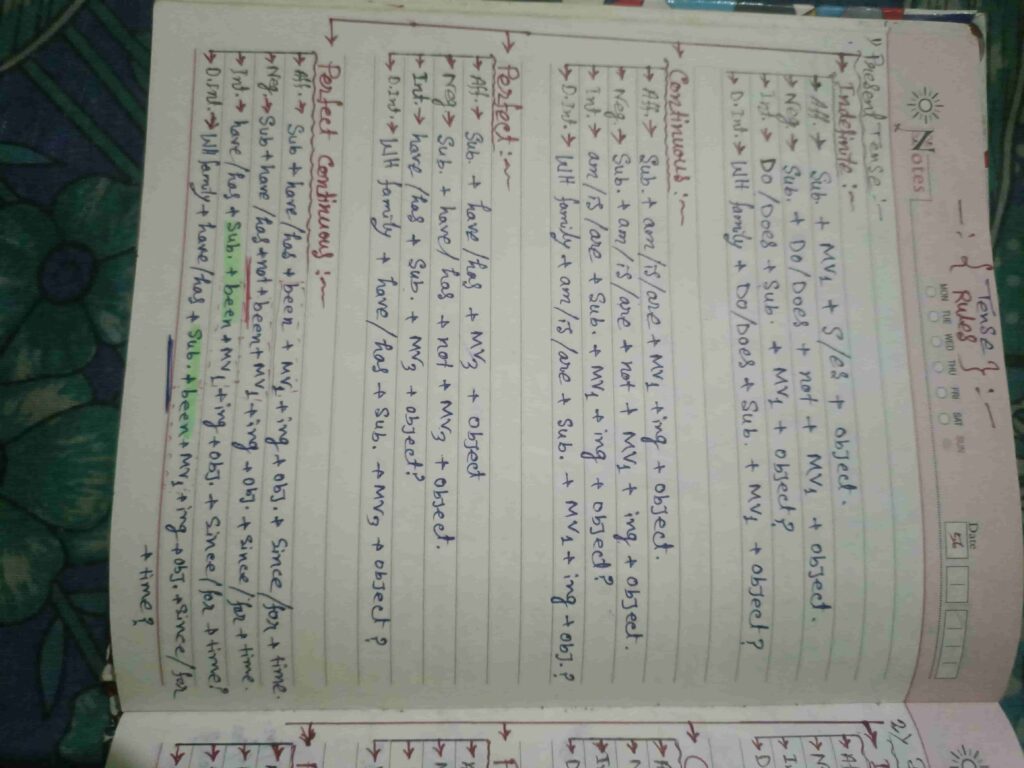 -: { Tense } :-
{ Rules }
NOTES
MON TUE WED THU FRI SAT SUN
Date
56
1) Present Tense :-
→ Indefinite :-
→ Aff. → Sub. + MV1 + S/es + object.
→ Neg → Sub. + Do/Does + not + MV1 + object.
→ Int. → Do/Does + Sub. + MV1 + object?
→ D.Int. → WH family + Do/Does + Sub. + MV1 + object?
→ Continuous :-
→ Aff. → Sub. + am/is/are + MV1 + ing + object.
→ Neg → Sub. + am/is/are + not + MV1 + ing + object.
→ Int. → am/is/are + Sub. + MV1 + ing + object?
→ D.Int. → WH family + am/is/are + Sub. + MV1 + ing + obj.?
→ Perfect :-
→ Aff → Sub. + have/has + MV3 + object
→ Neg → Sub. + have/has + not + MV3 + object.
→ Int. → have/has + Sub. + MV3 + object?
→ D.Int. → WH family + have/has + Sub. + MV3 + object?
→ Perfect Continuous :-
→ Aff. → Sub + have/has + been + MV1 + ing + obj. + Since/for + time.
→ Neg → Sub + have/has + not + been + MV1 + ing + obj. + Since/for + time.
→ Int. → have/has + Sub. + been + MV1 + ing + obj. + Since/for + time?
→ D.Int. → WH family + have/has + Sub. + been + MV1 + ing + obj. + since/for
+ time?
2)